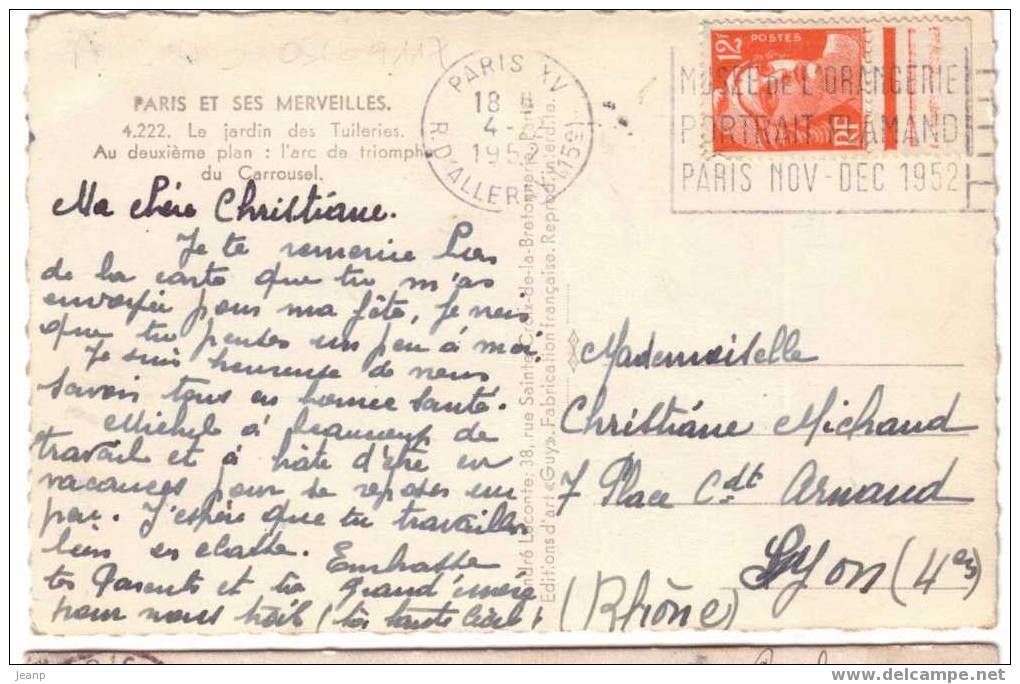 PARIS ET SES MERVEILLES.
4.222. Le jardin des Tuileries.
Au deuxième plan : l'arc de triomphe
du Carrousel.
PARIS XV
18 H
4-
1952
R. D'ALLERAY (15e)
12F
POSTES
RF
MUSÉE DE L'ORANGERIE
PORTRAIT FLAMAND
PARIS NOV-DEC 1952
Ma chère Christiane.
Je te remercie bien
de la carte que tu m'as
envoyée pour ma fête, je vois
que tu penses un peu à moi
Je suis heureuse de vous
savoir tous en bonne santé.
Michel à beaucoup de
travail et à hâte d'être en
vacances pour se reposer un
peu. J'espère que tu travailles
bien en classe. Embrasse
tes Parents et ta grand'mère
pour nous
André Leconte, 38, rue Sainte-Croix-de-la-Bretonnerie, Paris
Editions d'art «Guy». Fabrication française. Reprod. interdite.
Mademoiselle
Christiane Michaud
7 Place Cdt Arnaud
Lyon (4e)
(Rhône)
jeanp
www.delcampe.net